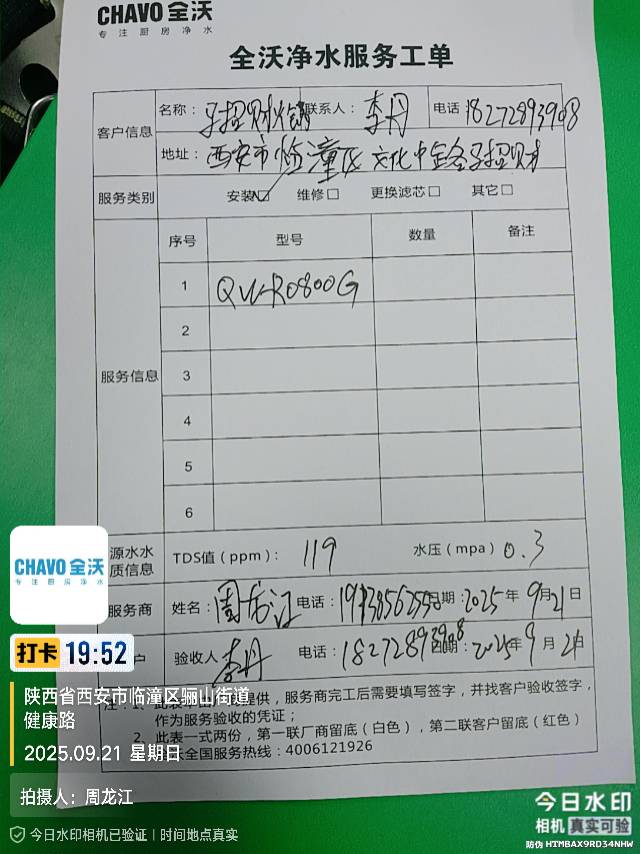 CHAVO 全沃
专注厨房净水
全沃净水服务工单
客户信息
名称： 联系人：李丹 电话 18272893908
地址：西安市临潼区文化中
服务类别 安装☑ 维修□ 更换滤芯□ 其它□
服务信息
序号 型号 数量 备注
1 QW-RO800G
2
3
4
5
6
源水水质信息 TDS值（ppm）：119 水压（mpa）0.3
服务商 姓名：周龙江 电话： 日期：2025年9月21日
户 验收人 李丹 电话：18272893908 日期：2025年9月21日
注：1、此表 提供，服务商完工后需要填写签字，并找客户验收签字，
作为服务验收的凭证；
2、此表一式两份，第一联厂商留底（白色），第二联客户留底（红色）
全国服务热线：4006121926
CHAVO 全沃
专注厨房净水
打卡 19:52
陕西省西安市临潼区骊山街道
健康路
2025.09.21 星期日
拍摄人：周龙江
今日水印相机已验证｜时间地点真实
今日水印
相机 真实可验
防伪 HTMBAX9RD34NHW